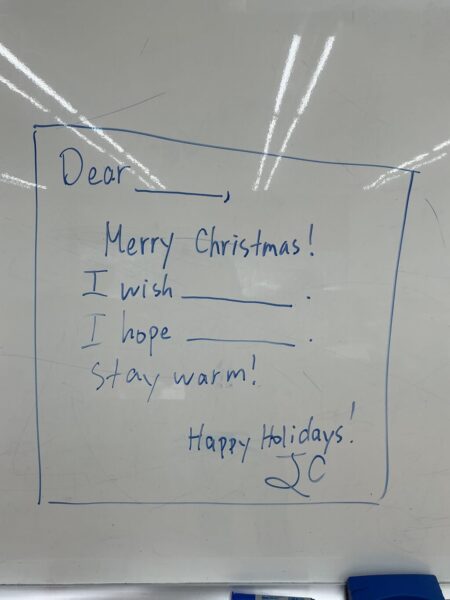 Dear ______,
Merry Christmas!
I wish ________.
I hope ________.
Stay warm!
Happy Holidays!
JC